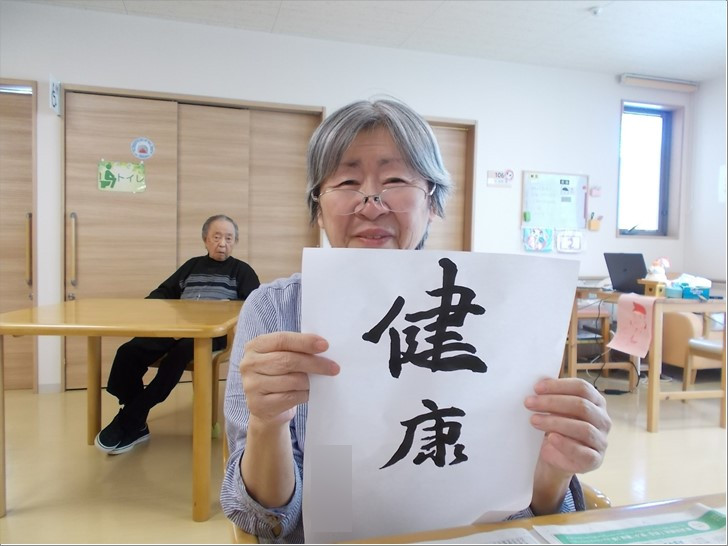 健
康
トイレ
106